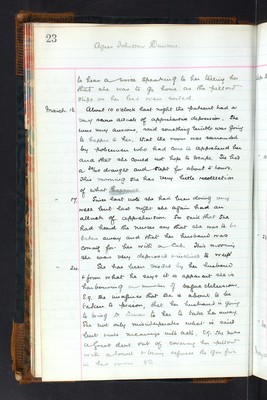 23
Agnes Johnston
to hear a voice speaking to her telling her
that she was to go home as the pillow
slips on her bed were soiled.
March 12. About 10 o'clock last night the patient had a
very severe attack of apprehensive depression. She
was very anxious, said something terrible was going
to happen to her, that the room was surrounded
by policemen who had come to apprehend her
and that she could not hope to escape. She had
a draught and slept for about 5 hours.
This morning she has very little recollection
of what happened
" 17. Since last note she had been doing very
well but last night she again had an
attack of apprehension. She said that she
had heard the nurses say that she was to be
taken away and that her husband was
coming for her with a Cab. This morning
she was very depressed & inclined to weep
" 24. She has been visited by her husband
& from what he says it is apparent she is
harbouring a number of vague delusions.
E.g. she imagines that she is about to be
taken to prison, that her husband is going
to bring to her to take her away.
She not only misinterprets what is said
but reads meanings into acts, E.g. She
a great deal out of covering her pillow
with a towel & being refused the Gas fire
in her room